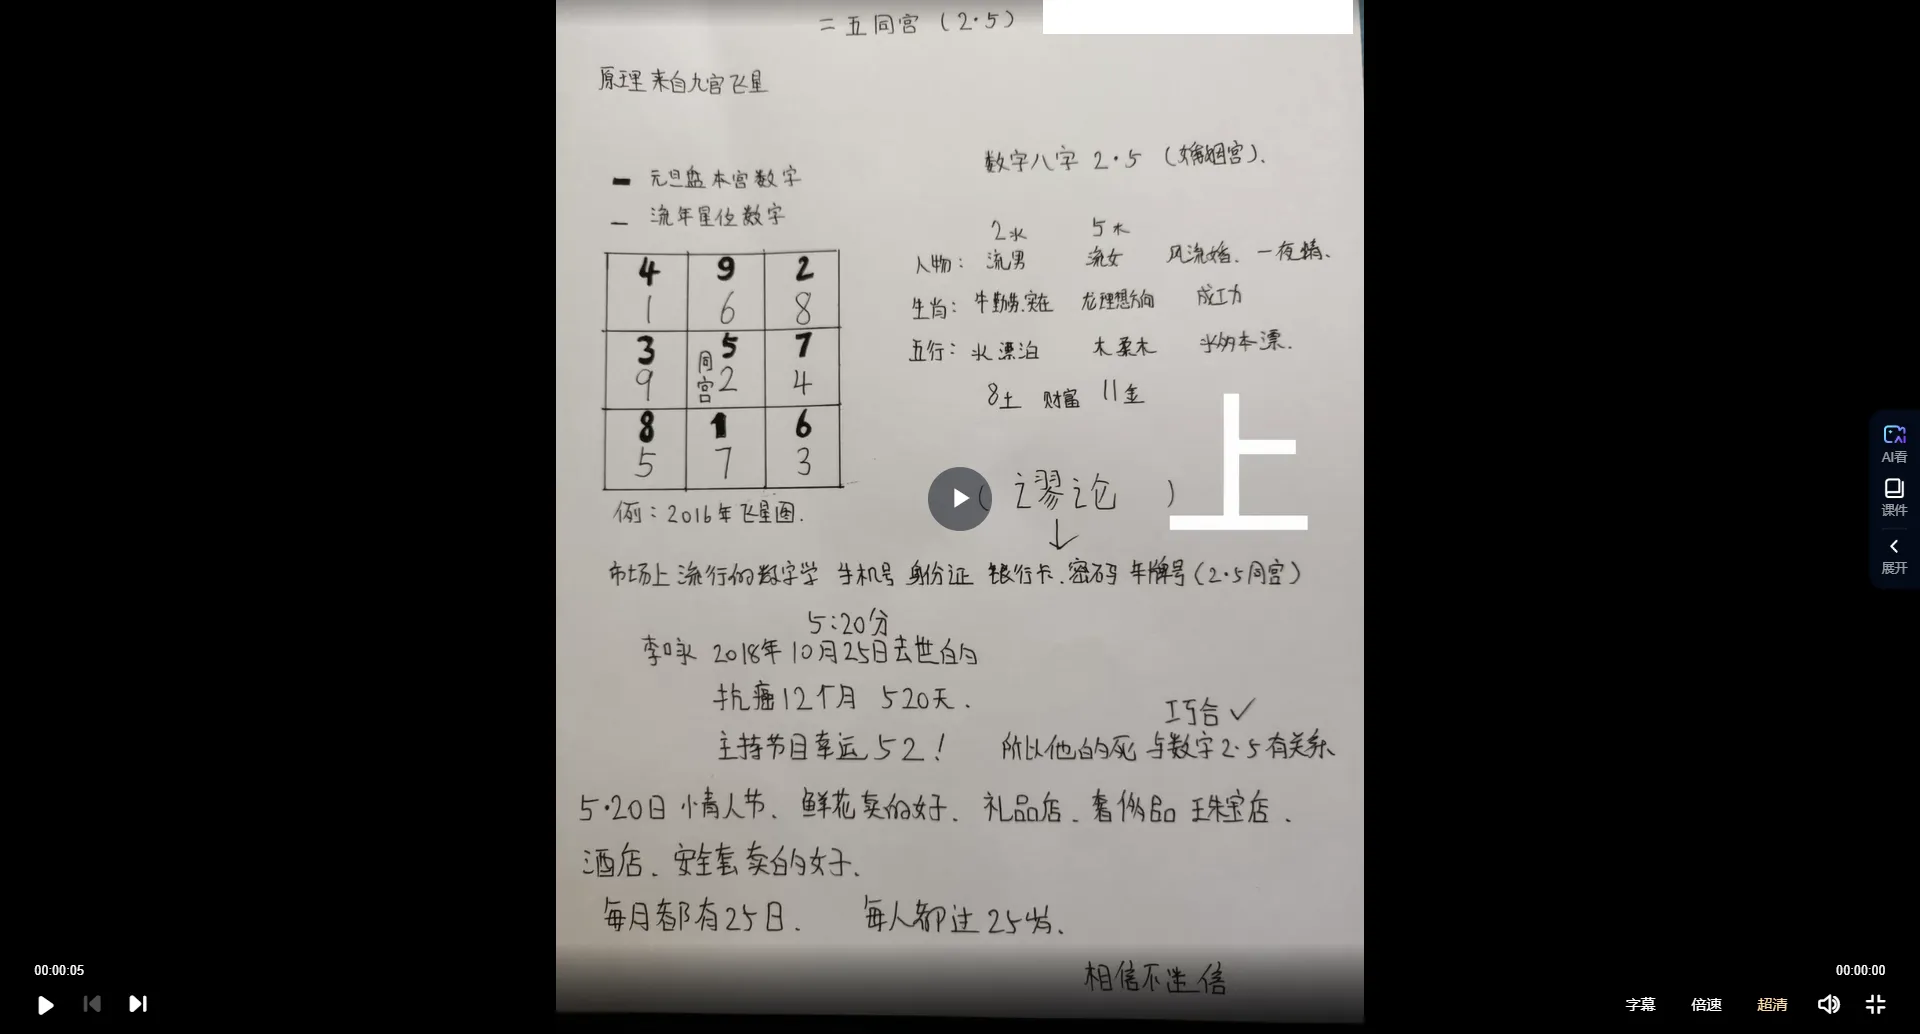 二五同宫（2·5）
原理来自九宫飞星
数字八字 2·5（婚姻宫）.
元旦盘本宫数字
流年星位数字
2水 5木
人物：流男 流女 风流婚、一夜情、
生肖：牛勤劳.实在 龙理想方向 成功
五行：水漂泊 木柔木 水多木漂.
8土 财富 11金
4 9 2
1 6 8
3 5 7
9 同宫 2 4
8 1 6
5 7 3
例：2016年飞星图.
上
（谬论）
市场上流行的数字学 手机号 身份证 银行卡.密码 车牌号（2·5同宫）
5:20分
李咏 2018年10月25日去世的
抗癌12个月 520天.
巧合✓
主持节目幸运52！ 所以他的死 与数字2·5有关系
5·20日 情人节、鲜花卖的好、礼品店、奢侈品 珠宝店、
酒店、安全套卖的好.
每月都有25日. 每人都过25岁、
相信不迷信
AI看
课件
展开
00:00:05
00:00:00
字幕 倍速 超清